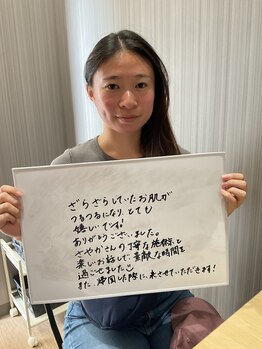 ざらざらしていたお肌が
つるつるになり、とても
嬉しいです!
ありがとうございました。
さやかさんの丁寧な施術と
楽しいお話しで、素敵な時間を
過ごせました
また、帰国した際に、来させていただきます!